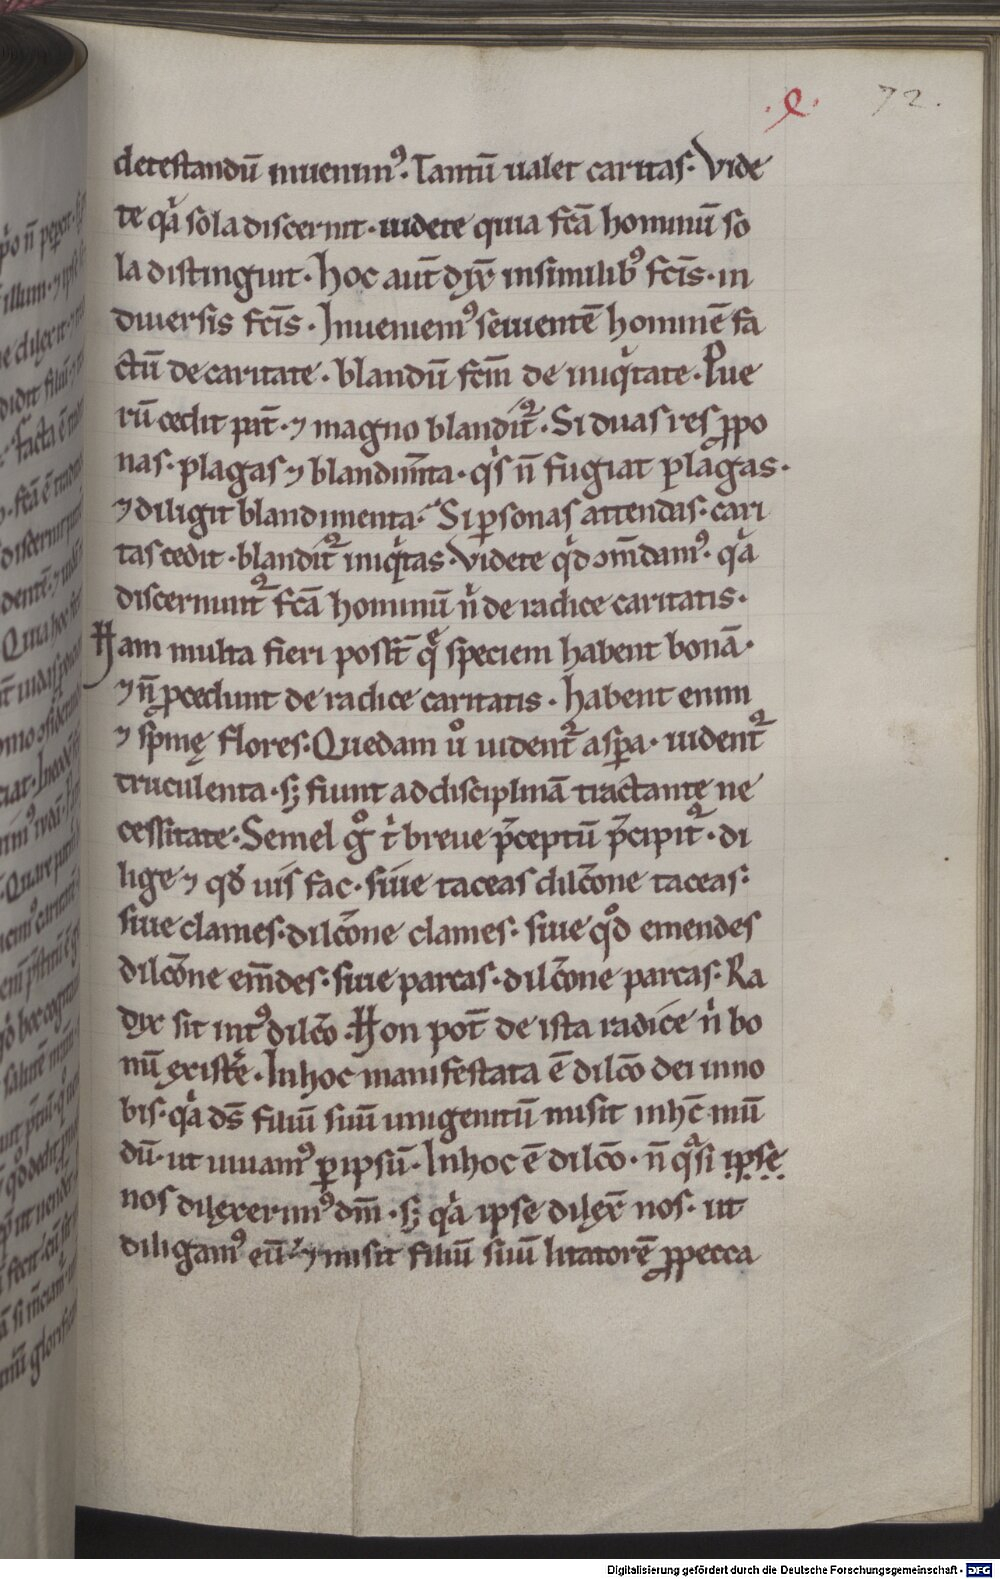 .e. 72.
detestandū inuenim᷒. Tantū ualet caritas. Vide
te qͥa sola discernit. uidete quia fc̄a hominū so
la distinguit. hoc aut̄ dix̄ in similib᷒ fc̄is. in
diuersis fc̄is. Inueniem᷒ seuientē hominē fa
ctū de caritate. blandū fcm̄ de iniqͥtate. Pue
rū cedit pat̄. ⁊ mango blandit᷑. Si duas res ꝓpo
nas. plagas ⁊ blandim̄ta. qͥs n̄ fugiat plagas.
⁊ diligit blandimenta. Si ꝑsonas attendas. cari
tas cedit. blandit᷑ iniqͥtas. Videte qͥd ꝯm̄dam᷒. qͥa
discernunt᷑ fc̄a hominū nͥ de radice caritatis.
Nam multa fieri poss̄t qͤ speciem habent bonā.
⁊ n̄ ꝓcedunt de radice caritatis. habent enim
⁊ spinę flores. Quedam uͦ uident᷑ aspa. uident᷑
truculenta. sꝫ fiunt ad disciplinā tractante ne
cessitate. Semel gͦ tͥ breue p̄ceptū p̄cipit᷑. di
lige ⁊ qd̄ uis fac. siue taceas dilc̄one taceas.
siue clames. dilc̄one clames. siue qͦd emendes
dilc̄one em̄des. siue parcas. dilc̄one parcas. Ra
dix sit int᷒ dilc̄o. Non pot̄ de ista radice nͥ bo
nū exist̄e. In hoc manifestata ē dilc̄o dei in no
bis. qͥa ds̄ filiū suū unigenitū misit in hc̄ mū
dū. ut uiuam᷒ ꝑ ipsū. In hoc ē dilc̄o. n̄ qͣsi ipse
nos dilexerim᷒ dm̄. sꝫ qͥa ipse dilex̄ nos. ut
diligam᷒ eū. ⁊ misit filiū suū litatorē ꝓ pecca
Digitalisierung gefördert durch die Deutsche Forschungsgemeinschaft - DFG